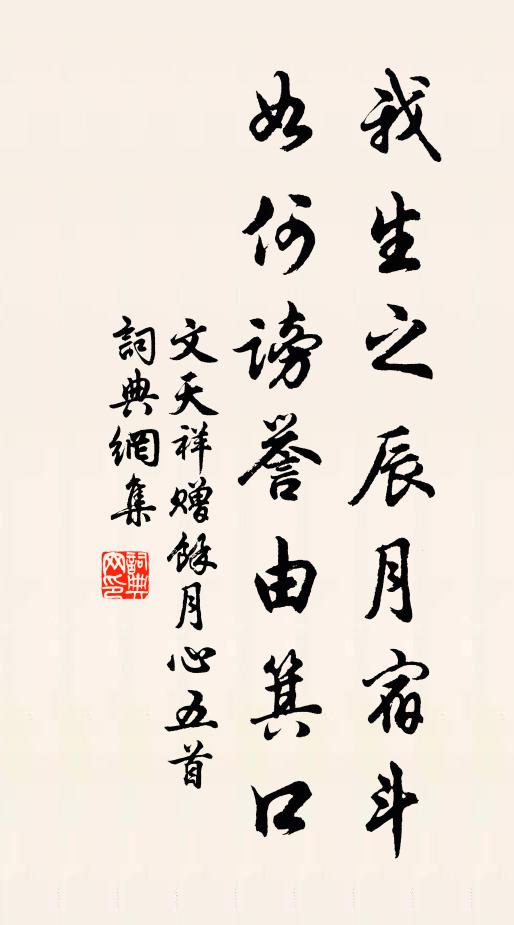 我生之辰月宿斗
如何謗譽由箕口
文天祥贈餘月心五首
詞典網集
詞典網印